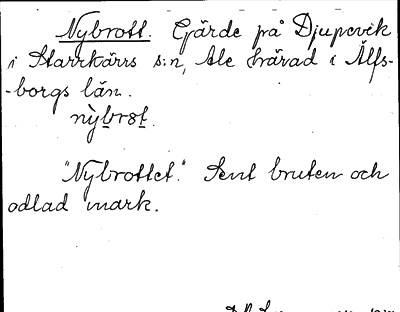 Nybrott. Gärde på Djupevik
i Starrkärrs s:n, Ale härad i Älfs-
-borgs län.
nỳbrot.
"Nybrottet." Sent bruten och
odlad mark.